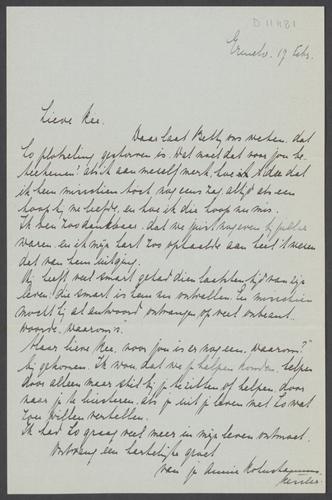 D 11481
Ermelo. 19 Febr.
Lieve Kee.
Daar laat Betty ons weten, dat
Co plotseling gestorven is. Wat moet dat voor jou be
teekenen! als ik aan mezelf merk, hoe ik dat
ik hem misschien toch nog eens zag, altijd als een
hoop bij me leefde, en hoe ik die hoop nu mis.
Ik ben zoo dankbaar, dat we juist nog even bij jullie
waren en ik mijn hart zoo ophaalde aan heel 't weren
dat van hem uitging.
Hij heeft veel smart gehad dien laatsten tijd van zijn
leven! die smart is hem nu ontvallen. En misschien
mocht hij al antwoord ontvangen op veel onbeant
woorde, waarom's.
Maar lieve Kee, voor jou is er nog een "waarom?"
bij gekomen. Ik wou, dat we je helpen konden, helpen
door alleen maar stil bij je te zitten of helpen, door
naar je te luisteren, als je uit je leven met Co wat
zou willen vertellen.
Ik had Co graag veel meer in mijn leven ontmoet.
Ontvang een hartelijke groet
van je Annie